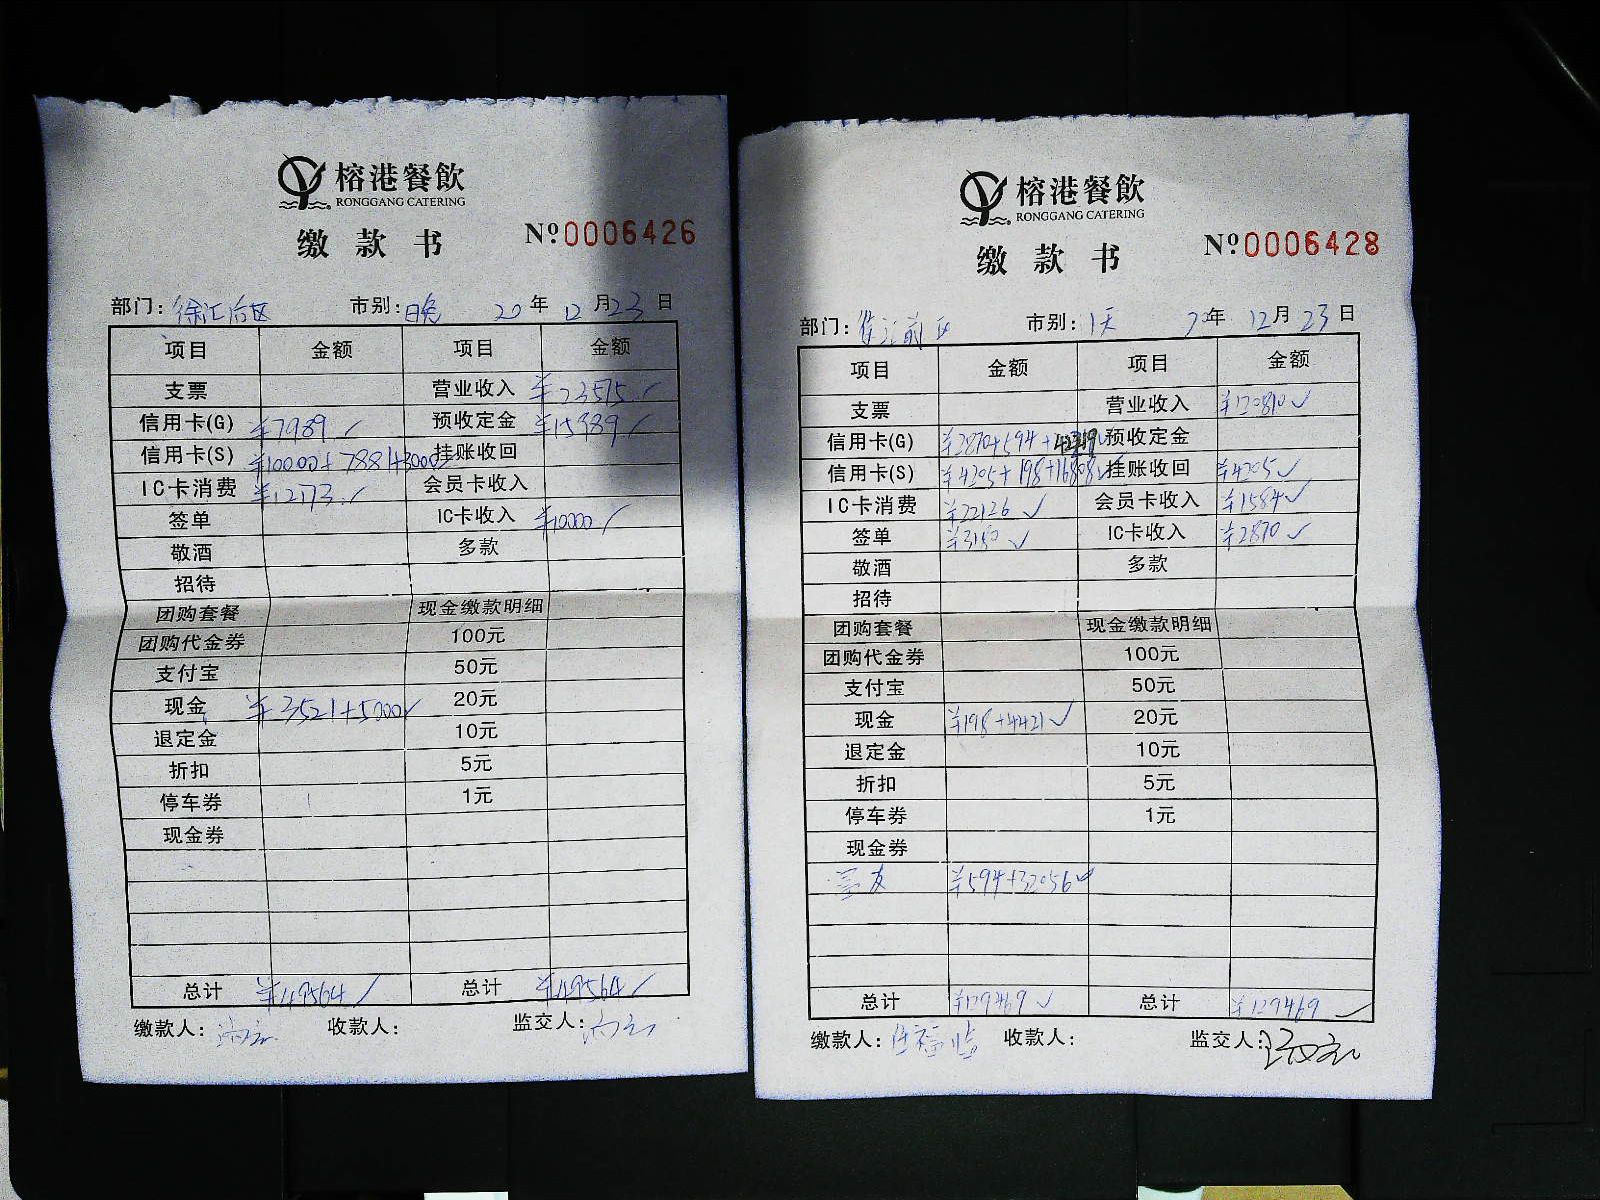 榕港餐飲
RONGGANG CATERING
缴款书 Nº0006426
部门: 徐汇后区 市别: 晚 20年12月23日
项目 金额 项目 金额
支票 营业收入 ¥23575
信用卡(G) ¥7989 预收定金 ¥15989
信用卡(S) ¥10000+7881+3000 挂账收回
IC卡消费 ¥12173 会员卡收入
签单 IC卡收入 ¥10000
敬酒 多款
招待
团购套餐 现金缴款明细
团购代金券 100元
支付宝 50元
现金 ¥3521+5000 20元
退定金 10元
折扣 5元
停车券 1元
现金券
总计 ¥49564 总计 ¥49564
缴款人: 收款人: 监交人:
榕港餐飲
RONGGANG CATERING
缴款书 Nº0006428
部门: 徐汇前区 市别: 1天 20年12月23日
项目 金额 项目 金额
支票 营业收入 ¥120810
信用卡(G) ¥2870+594+42349 预收定金
信用卡(S) ¥4205+198+16808 挂账收回 ¥4205
IC卡消费 ¥22126 会员卡收入 ¥1584
签单 ¥3150 IC卡收入 ¥2870
敬酒 多款
招待
团购套餐 现金缴款明细
团购代金券 100元
支付宝 50元
现金 ¥198+4421 20元
退定金 10元
折扣 5元
停车券 1元
现金券
¥594+32056
总计 ¥129469 总计 ¥129469
缴款人: 收款人: 监交人: